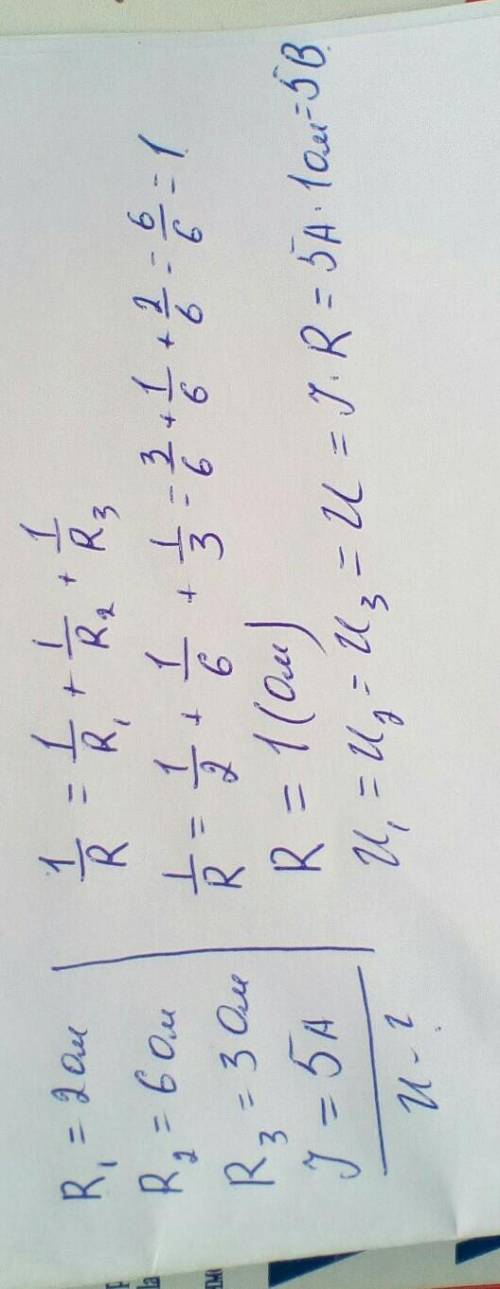 R₁ = 2 Ом
R₂ = 6 Ом
R₃ = 3 Ом
I = 5А
U - ?
1/R = 1/R₁ + 1/R₂ + 1/R₃
1/R = 1/2 + 1/6 + 1/3 = 3/6 + 1/6 + 2/6 = 6/6 = 1
R = 1 (Ом)
U₁ = U₂ = U₃ = U = I · R = 5А · 1 Ом = 5В